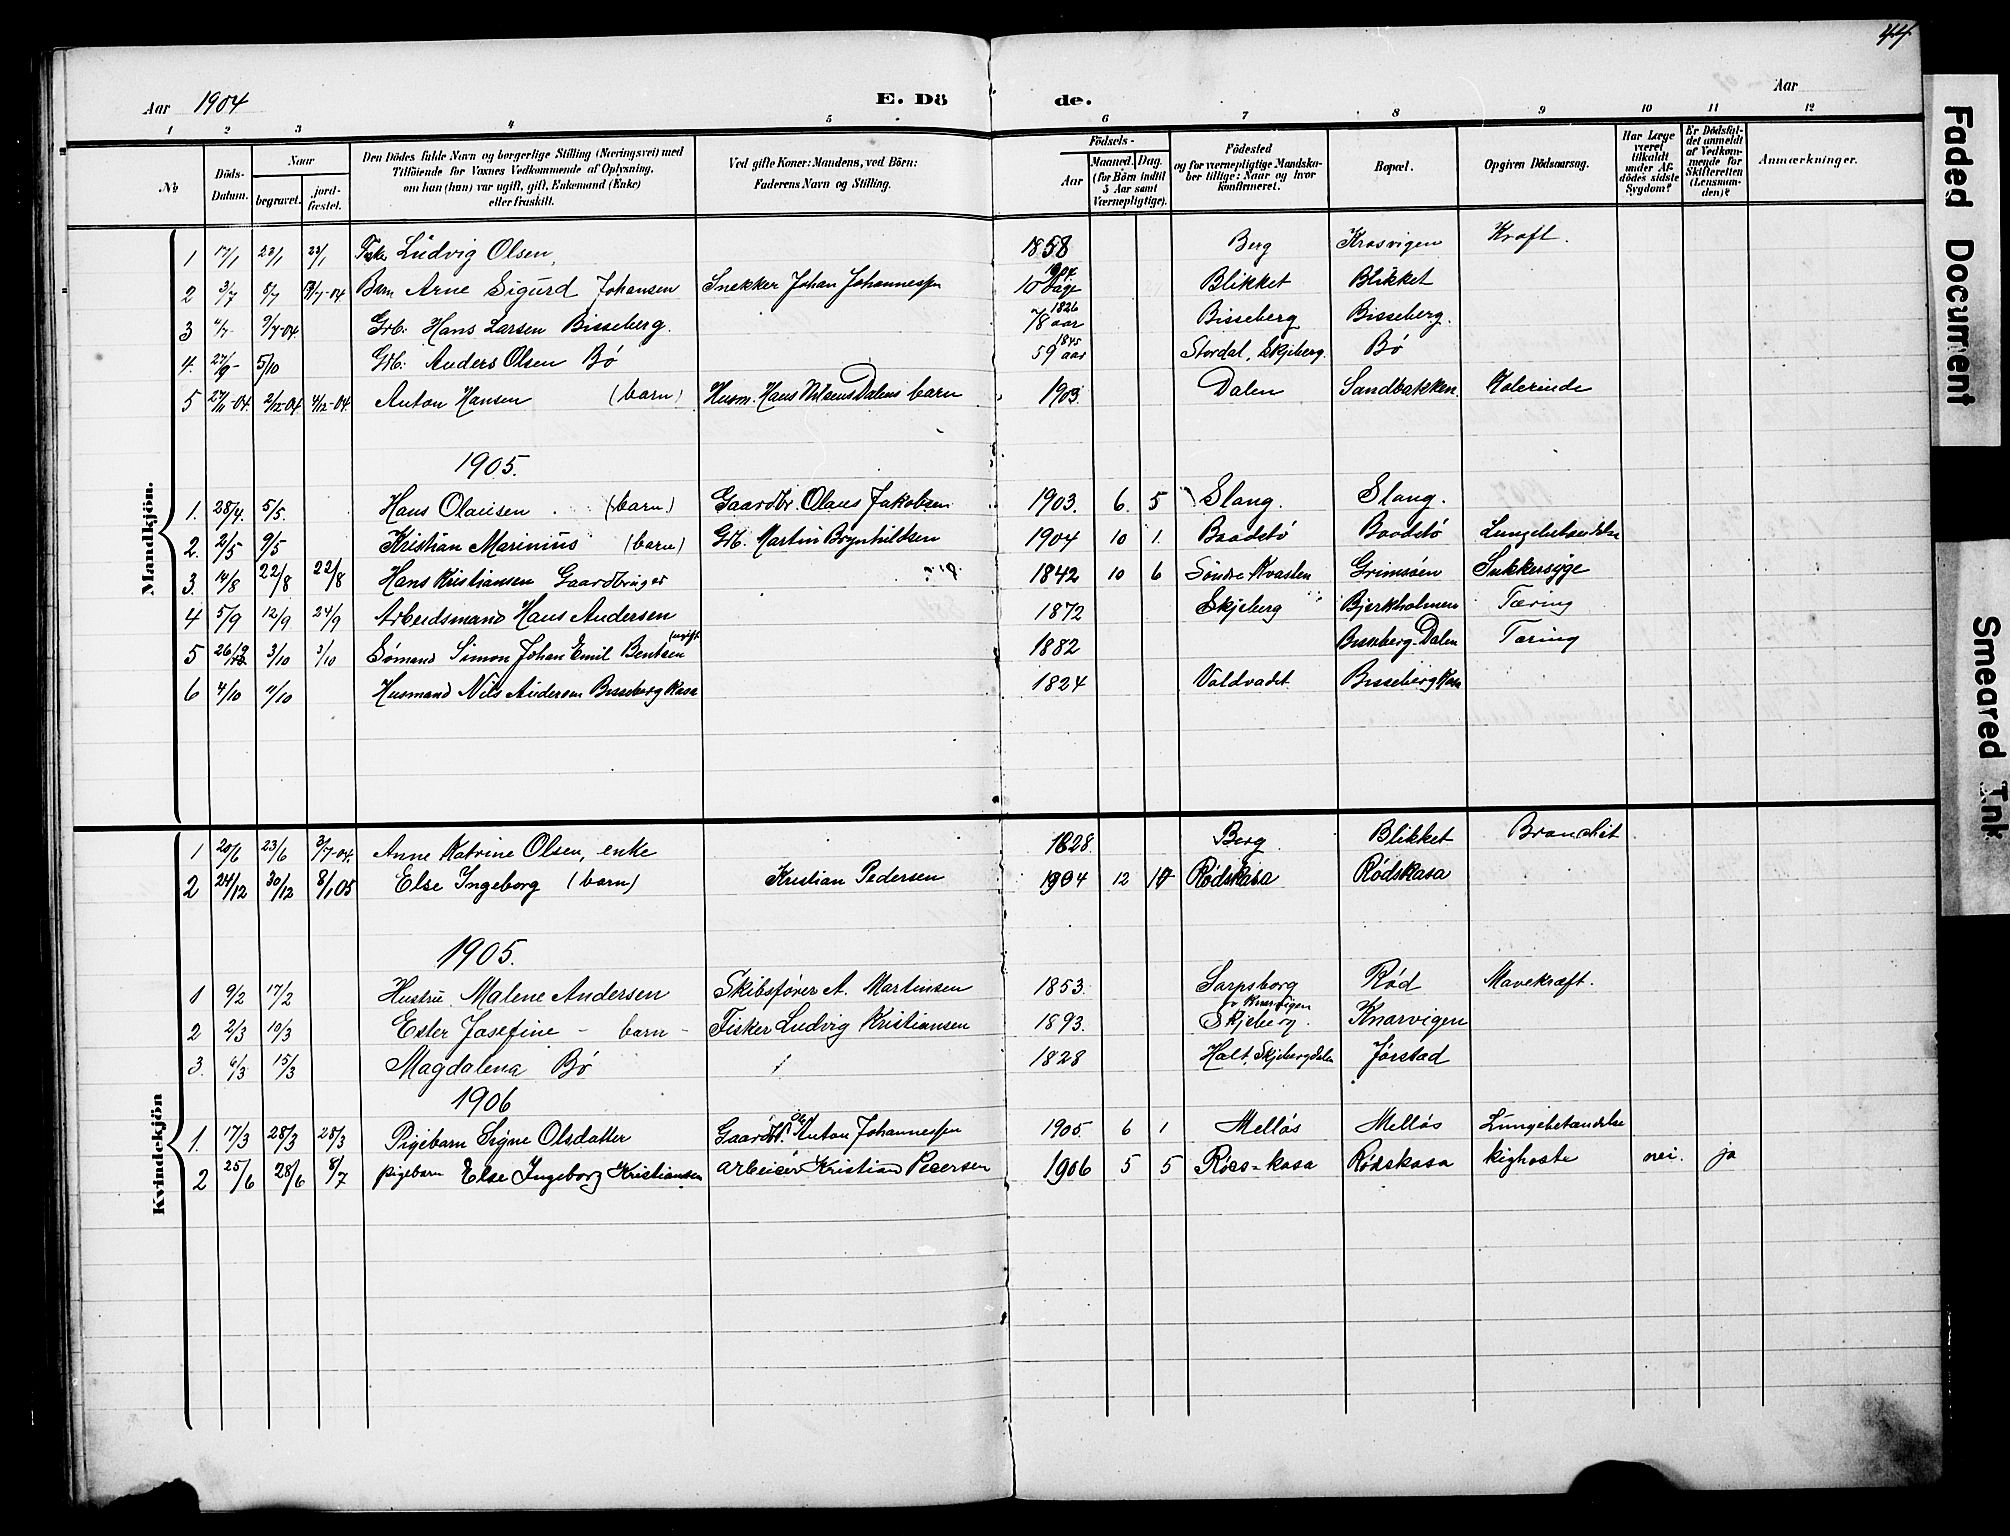 44
Aar 1904 E. Dö de. Aar
1 2 3 4 5 6 7 8 9 10 11 12
№ Döds-Datum. Naar begravet. jord-fæstet. Den Dödes fulde Navn og borgerlige Stilling (Næringsvei) med Tilföiende for Voxnes Vedkommende af Oplysning, om han (hun) var ugift, gift, Enkemand (Enke) eller fraskilt. Ved gifte Koner: Mandens, ved Börn: Faderens Navn og Stilling. Födsels- Aar Maaned. Dag. (for Börn indtil 5 Aar samt Værnepligtige). Födested og for værnepligtige Mandskaber tillige: Naar og hvor konfirmeret. Bopæl. Opgiven Dödsaarsag. Har Læge været tilkaldt under Afdödes sidste Sygdom? Er Dödsfaldet anmeldt af Vedkommende for Skifteretten (Lensmanden)? Anmærkninger.
Mandkjön.
1 17/1 23/1 23/1 Ludvig Olsen, 1858 Berg Krosvigen Kræft.
2 3/7 5/7 Barn Arne Sigurd Johansen Snekker Johan Johannessen 1904 10 Dage Blikket Blikket
3 9/7-04. Grb: Hans Larsen Bisseberg. 1826 78 aar Bisseberg Bisseberg.
4. 27/9- 5/10 Grb: Anders Olsen Bø 1845 59 aar Stordal, Skjeberg. Bø
5 27/11-04. 2/12-04 4/12-04. Anton Hansen (barn) Husm. Hans Dalens barn 1903 Dalen Sandbakken. Kolerinde
1905.
1. 28/4. 5/5. Hans Olausen (barn) Gaardbr. Olaus Jakobsen 1903. 6. 5 Slang. Slang.
2. 2/5 9/5 Kristian Marinius (barn) Grb. Martin Brynhildsen 1904 10 1. Baadstø Baadstø Lungebetændelse
3. 14/8 22/8 22/8 Hans Kristiansen Gaardbruger 1842 10 6 Søndre Kvasten Grimsøen Sukkersyge
4 5/9 12/9 24/9 Arbeidsmand Hans Andersen 1872 Skjeberg Bjerkholmen Tæring
5 26/9 3/10 3/10 Sømand Simon Johan Emil Bentsen (ugift 1882 Bisseberg Dalen Tæring
6 4/10 11/10 Husmand Nils Andersen Bisseberg Kasa 1824 Voldvadet Bisseberg Kasa
Kvindekjön
1 20/6 23/6 3/7-04. Anne Katrine Olsen, enke 1828. Berg. Blikket Bronchit
2 24/12 30/12 8/1 05 Else Ingeborg (barn) Kristian Pedersen 1904 12 10 Rødskasa Rødskasa
1905.
1 9/2 17/2 Hustru Malene Andersen Skibsfører A. Martinsen 1853. Sarpsborg Rød Mavekræft.
2 2/3 10/3 Ester Josefine - barn - Fisker Ludvig Kristiansen 1893. Knarvigen Skjeberg. Knarvigen
3. 6/3 15/3 Magdalena Bø 1828 Halt, Skjebergdalen Jørstad
1906
1. 17/3 28/3 28/3 Pigebarn Signe Olsdatter Gaardbr. Ole Anton Johannessen 1905. 6 1 Melløs Melløs Lungebetændelse
2 25/6 28/6 8/7 pigebarn Else Ingeborg Kristiansen arbeider Kristian Pedersen 1906 5 5 Røds=kasa Rødskasa kighoste nei. ja
Faded Document
Smeared Ink